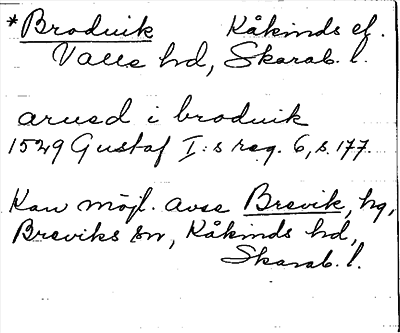 *Brodvik Kåkinds el.
Valle hd, Skarab. l.
arued i brodvik
1529 Gustaf I:s reg. 6, s. 177.
Kan möjl. avse Brevik, hg,
Breviks sn, Kåkinds hd,
Skarab. l.